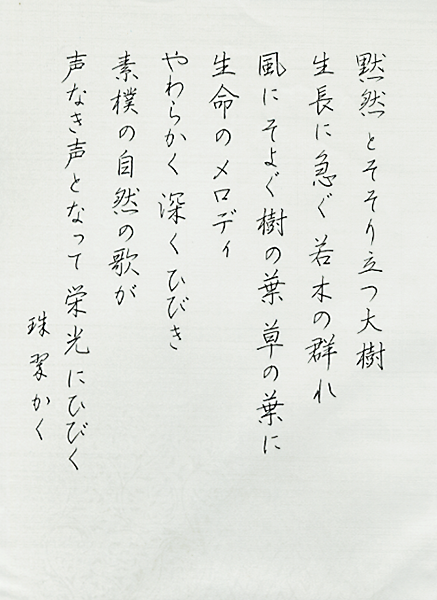 黙然とそそり立つ大樹
生長に急ぐ若木の群れ
風にそよぐ樹の葉 草の葉に
生命のメロディ
やわらかく 深くひびき
素樸の自然の歌が
声なき声となって栄光にひびく
珠翠かく